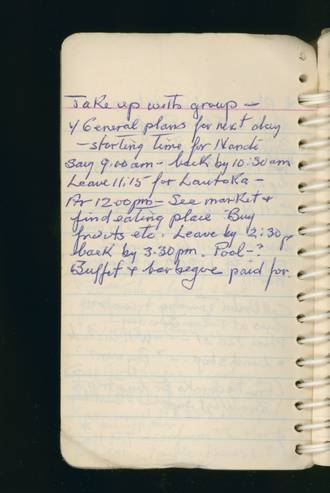 Take up with group –
4 General plans for next day
– starting time for Nandi
say 9:00 am – back by 10:30 am
Leave 11:15 for Lautoka –
Ar 12:00 pm – See market &
find eating place – Buy
fruits etc. Leave by 2:30 p
back by 3:30 pm. Pool – ?
Buffet & barbegue paid for